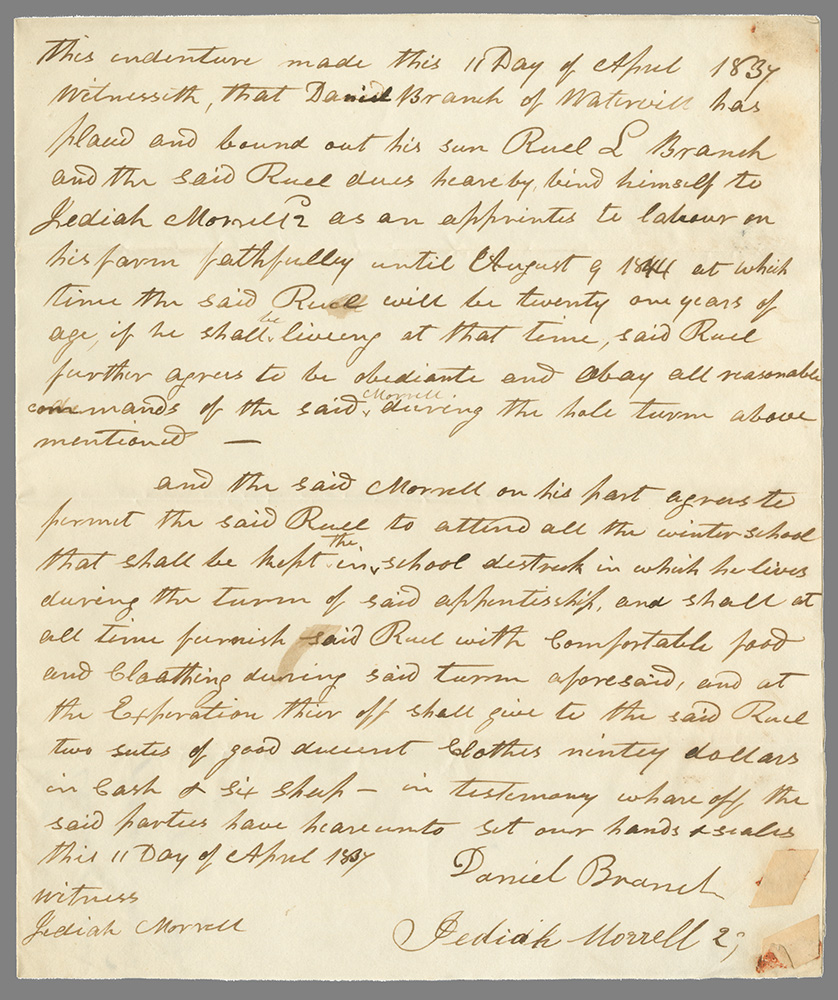 this indenture made this 11 Day of April 1837
Witnesseth, that Daniel Branch of Watervill has
plased and bound out his sun Ruel L Branch
and the said Ruel dues heareby, bind himself to
Jediah Morrell 2 as an apprintes to labour on
his farm fathfulley until August 9 1844 at which
time the said Ruel will be twenty one years of
age, if he shall be liveing at that time, said Ruel
further agrees to be obediante and Obay all reasonable
commands of the said Morrell dureing the hole turm above
mentioned —
and the said Morrell on his part agrees to
permit the said Ruel to attend all the winter school
that shall be kept in the school destrick in which he lives
dureing the turm of said apprentisship, and shall at
all time furnish said Ruel with Comfortable food
and Cloathing dureing said turm aforesaid, and at
the Experation thier off shall give to the said Ruel
two sutes of good ducent Clothes nintey dollars
in Cash & six sheep — in testemony whare off the
said parties have heareunto set our hands & seales
this 11 Day of April 1837
Daniel Branch
witness
Jediah Morrell
Jediah Morrell 2;